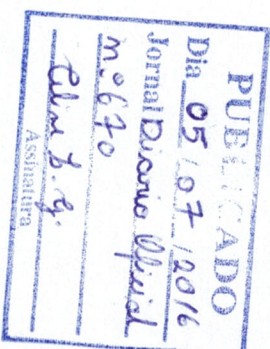 PUBLICADO
Dia 05 / 07 / 2016
Jornal Diario Oficial
nº 670
Assinatura